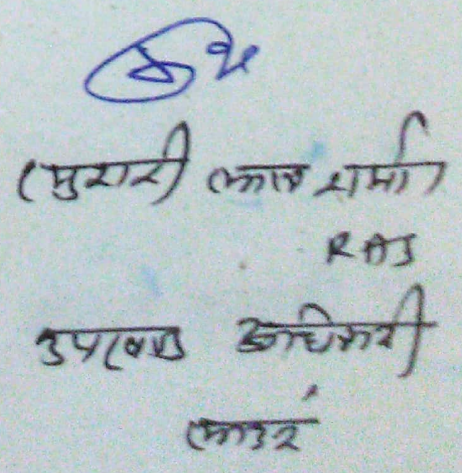 (मुरारी लाल शर्मा)
RAS
उपखण्ड अधिकारी